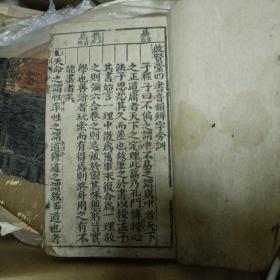 啟賢堂四書音韻辨字旁訓
子程子曰不偏之謂中不易之謂庸中者天下
之正道庸者天下之定理此篇乃孔門傳授心
法子思恐其久而差也故筆之於書以授孟子
其書始言一理中散為萬事末復合為一理放
之則彌六合卷之則退藏於密其味無窮皆實
學也善讀者玩索而有得焉則終身用之有不
能盡者矣
天命之謂性率性之謂道修道之謂教道也者
易